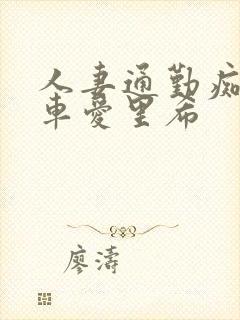 人妻通勤痴
車愛里希
廖濤